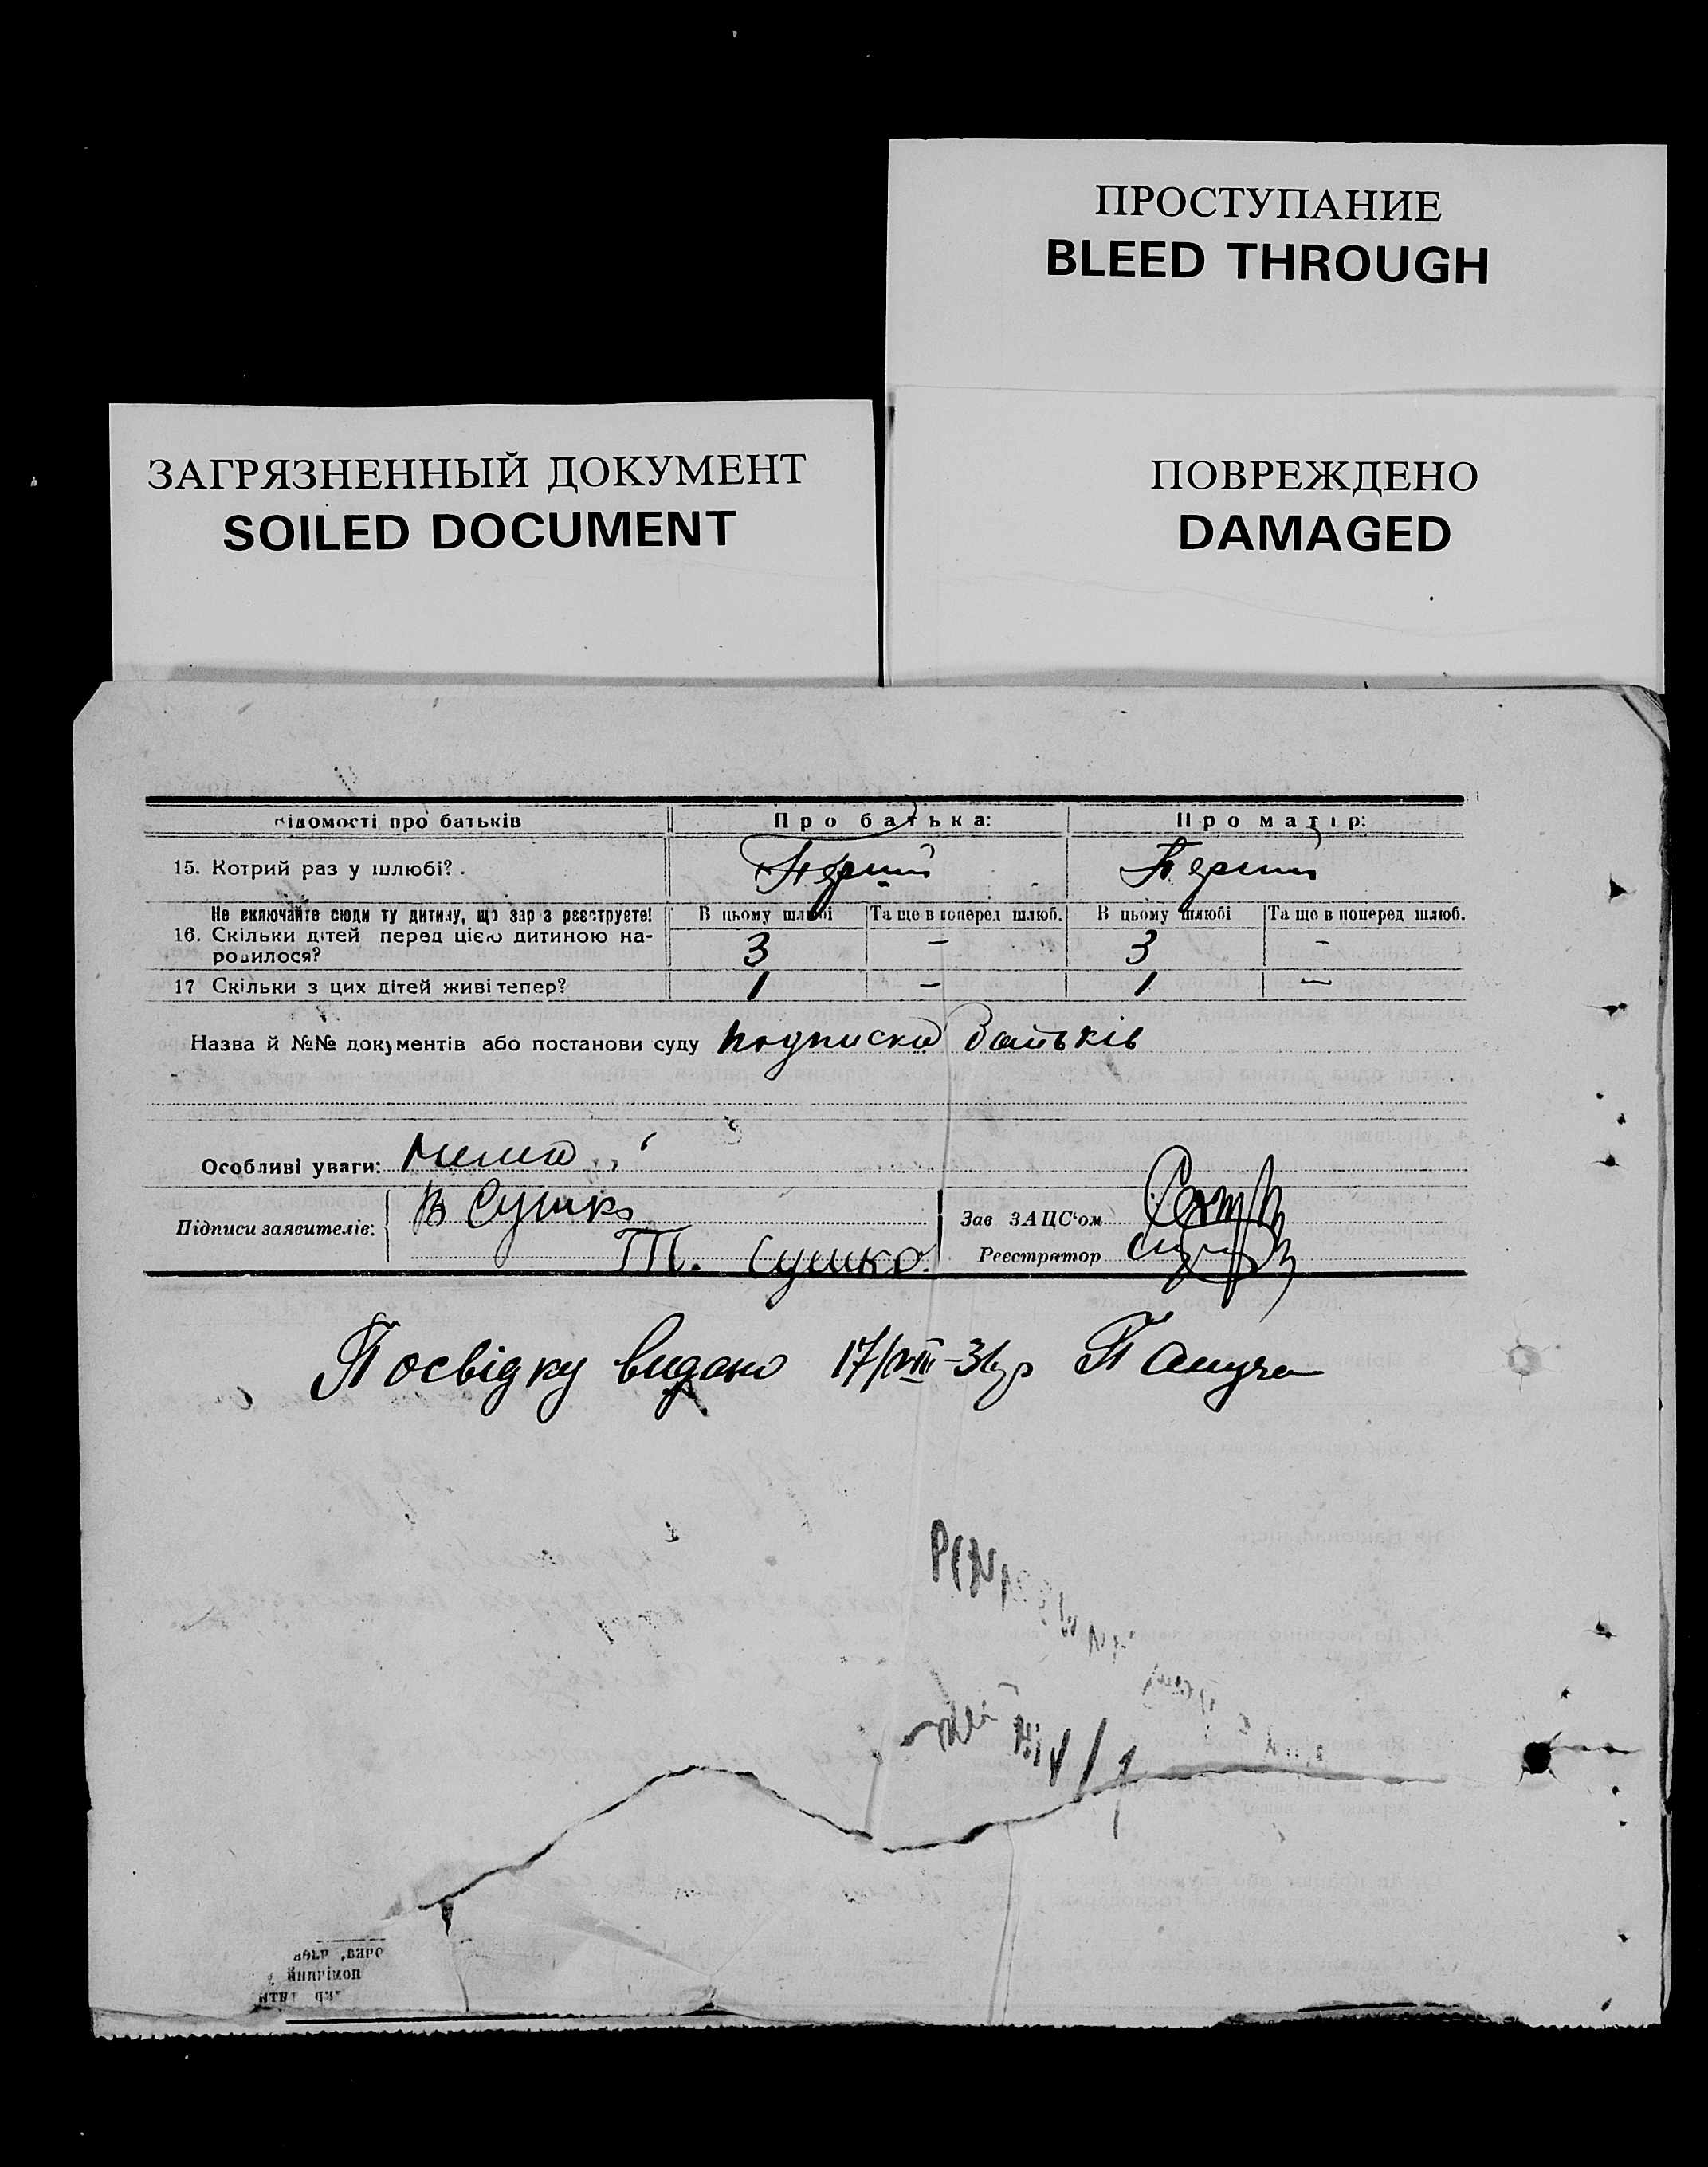 ПРОСТУПАНИЕ
BLEED THROUGH
ЗАГРЯЗНЕННЫЙ ДОКУМЕНТ
SOILED DOCUMENT
ПОВРЕЖДЕНО
DAMAGED
відомості про батьків Про батька: Про матір:
15. Котрий раз у шлюбі? Перший Перший
Не включайте сюди ту дитину, що зараз реєструєте! В цьому шлюбі Та ще в поперед. шлюб. В цьому шлюбі Та що в поперед. шлюб.
16. Скільки дітей перед цією дитиною на-
родилося? 3 – 3 –
17 Скільки з цих дітей живі тепер? 1 – 1 –
Назва й №№ документів або постанови суду подписка батьків
Особливі уваги: нема
Підписи заявителів: В Сушко
Т. Сушко.
Зав ЗАЦС'ом
Реєстратор
Посвідку видано 17/VIII-31 р